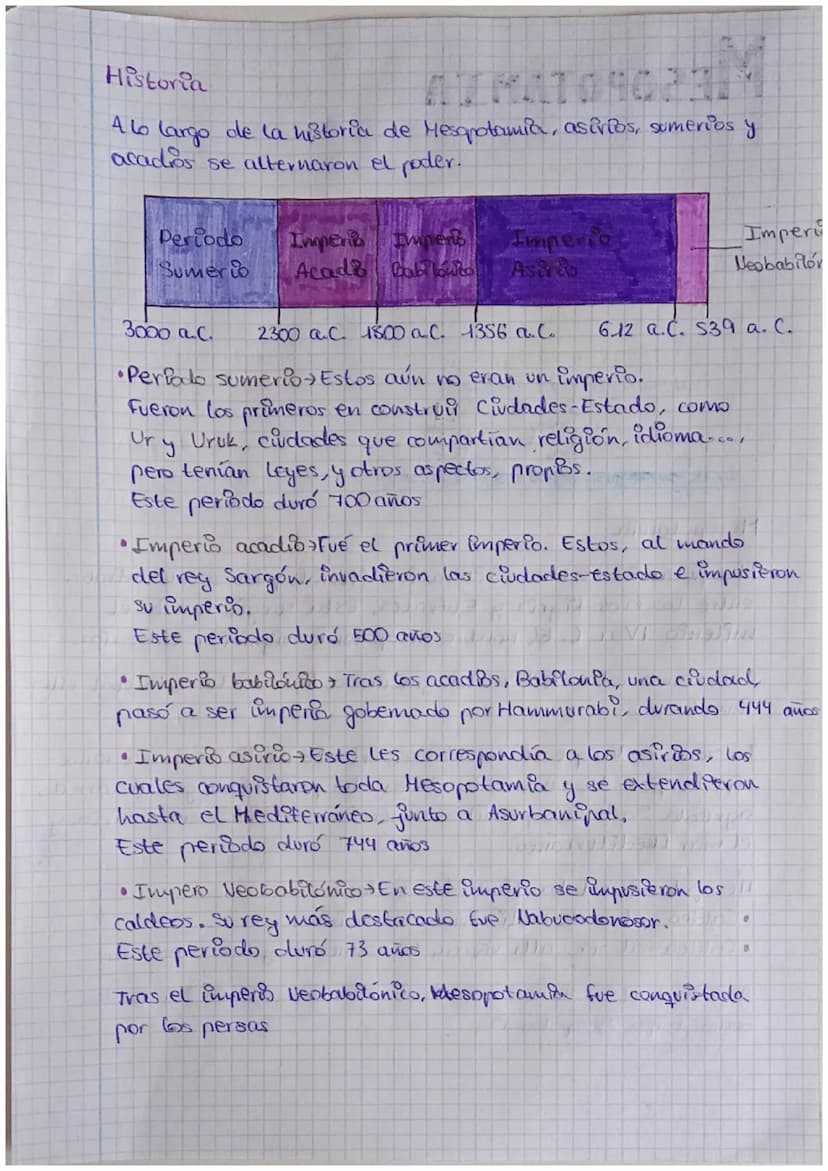 Historia
A lo largo de la historia de Mesopotamia, asirios, sumerios y
acadios se alternaron el poder.
Periodo Sumerio
Imperio Acadio
Imperio Babilónico
Imperio Asirio
Imperi
Neobabilón
3000 a.C. 2300 a.C. 1800 a.C. 1356 a.C. 612 a.C. 539 a.C.
•Periodo sumerio→Estos aún no eran un imperio.
Fueron los primeros en construir Ciudades-Estado, como
Ur y Uruk, ciudades que compartían religión, idioma...,
pero tenían leyes, y otros aspectos, propios.
Este periodo duró 700 años
•Imperio acadio→Fué el primer imperio. Estos, al mando
del rey Sargón, invadieron las ciudades-estado e impusieron
su imperio.
Este periodo duró 500 años
•Imperio babilónico→Tras los acadios, Babilonia, una ciudad,
pasó a ser imperio gobernado por Hammurabi, durando 444 años
•Imperio asirio→Este les correspondía a los asirios, los
cuales conquistaron toda Mesopotamia y se extendieron
hasta el Mediterráneo, junto a Asurbanipal.
Este periodo duró 744 años
•Impero Neobabilónico→En este imperio se impusieron los
caldeos. Su rey más destacado fue Nabucodonosor.
Este periodo duró 73 años
Tras el imperio Neobabilónico, Mesopotamia fue conquistada
por los persas